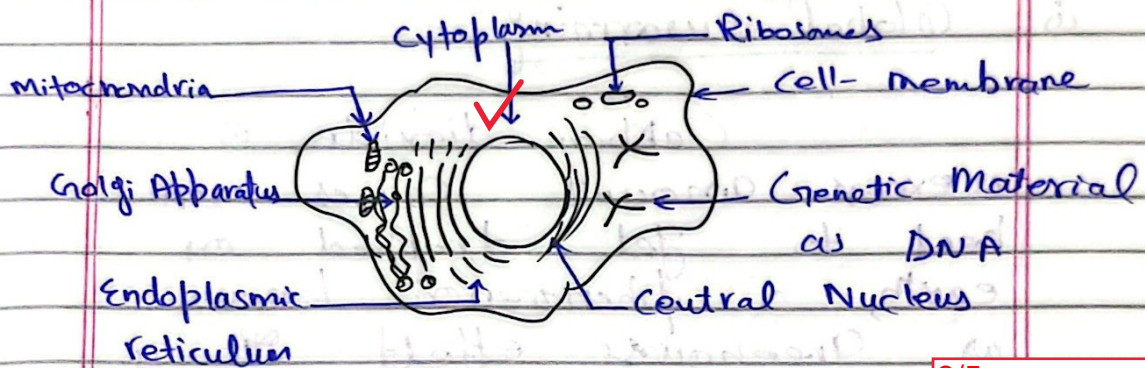 Cytoplasm
Ribosomes
Mitochondria
Cell-membrane
Golgi Apparatus
Genetic Material
as DNA
Endoplasmic
reticulum
Central Nucleus